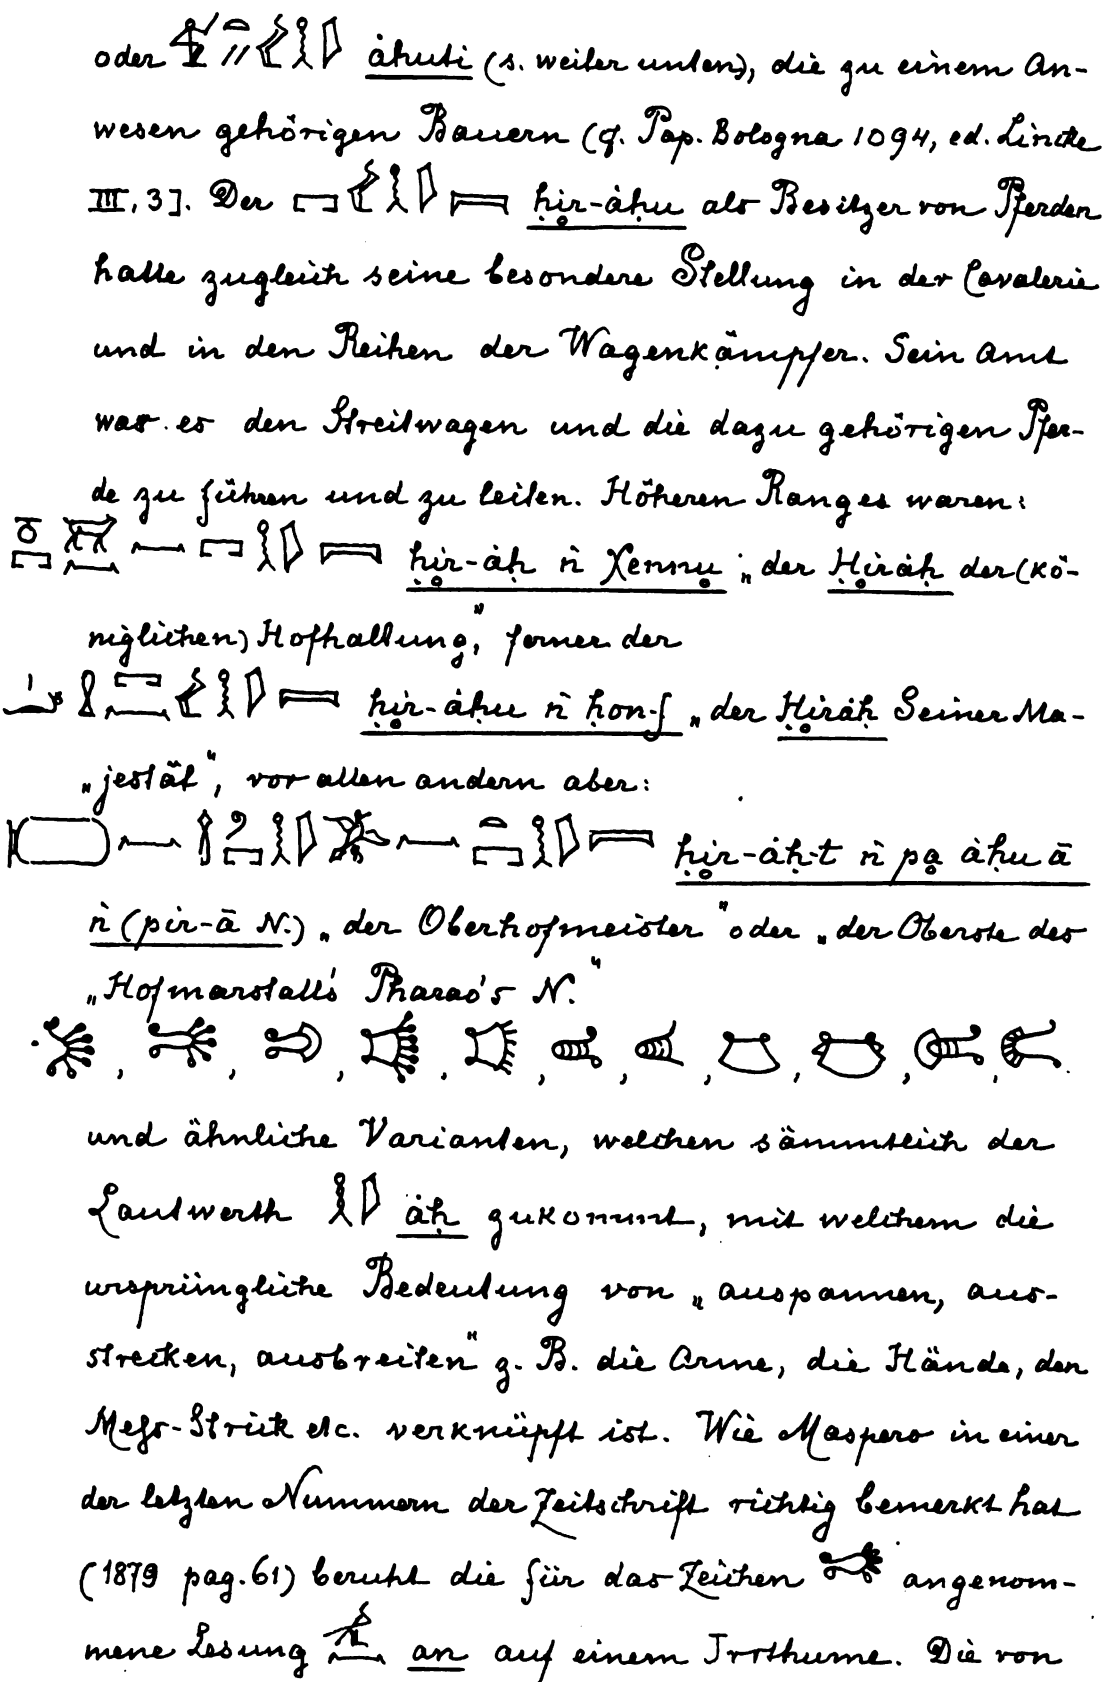 oder ȧḥuti (s. weiter unten), die zu einem An-
wesen gehörigen Bauern (cf. Pap. Bologna 1094, ed. Lincke
III, 3]. Der ḥir-ȧḥu als Besitzer von Pferden
hatte zugleich seine besondere Stellung in der Cavalerie
und in den Reihen der Wagenkämpfer. Sein Amt
war es den Streitwagen und die dazu gehörigen Pfer-
de zu führen und zu leiten. Höheren Ranges waren:
ḥir-ȧḥ ṅ Xennu „der Ḥirȧḥ der (kö-
niglichen) Hofhaltung“, ferner der
ḥir-ȧḥu ṅ ḥon-f „der Ḥirȧḥ Seiner Ma-
„jestät“, vor allen andern aber:
ḥir-ȧḥ-t ṅ pa ȧḥu ā
ṅ (pir-ā N.) „der Oberhofmeister“ oder „der Oberste des
„Hofmarstall's Pharao's N.“
und ähnliche Varianten, welchen sämmtlich der
Lautwerth ȧḥ zukommt, mit welchem die
ursprüngliche Bedeutung von „ausspannen, aus-
strecken, ausbreiten“ z. B. die Arme, die Hände, den
Mess-Strick etc. verknüpft ist. Wie Maspero in einer
der letzten Nummern der Zeitschrift richtig bemerkt hat
(1879 pag. 61) beruht die für das Zeichen angenom-
mene Lesung an auf einem Irrthume. Die von